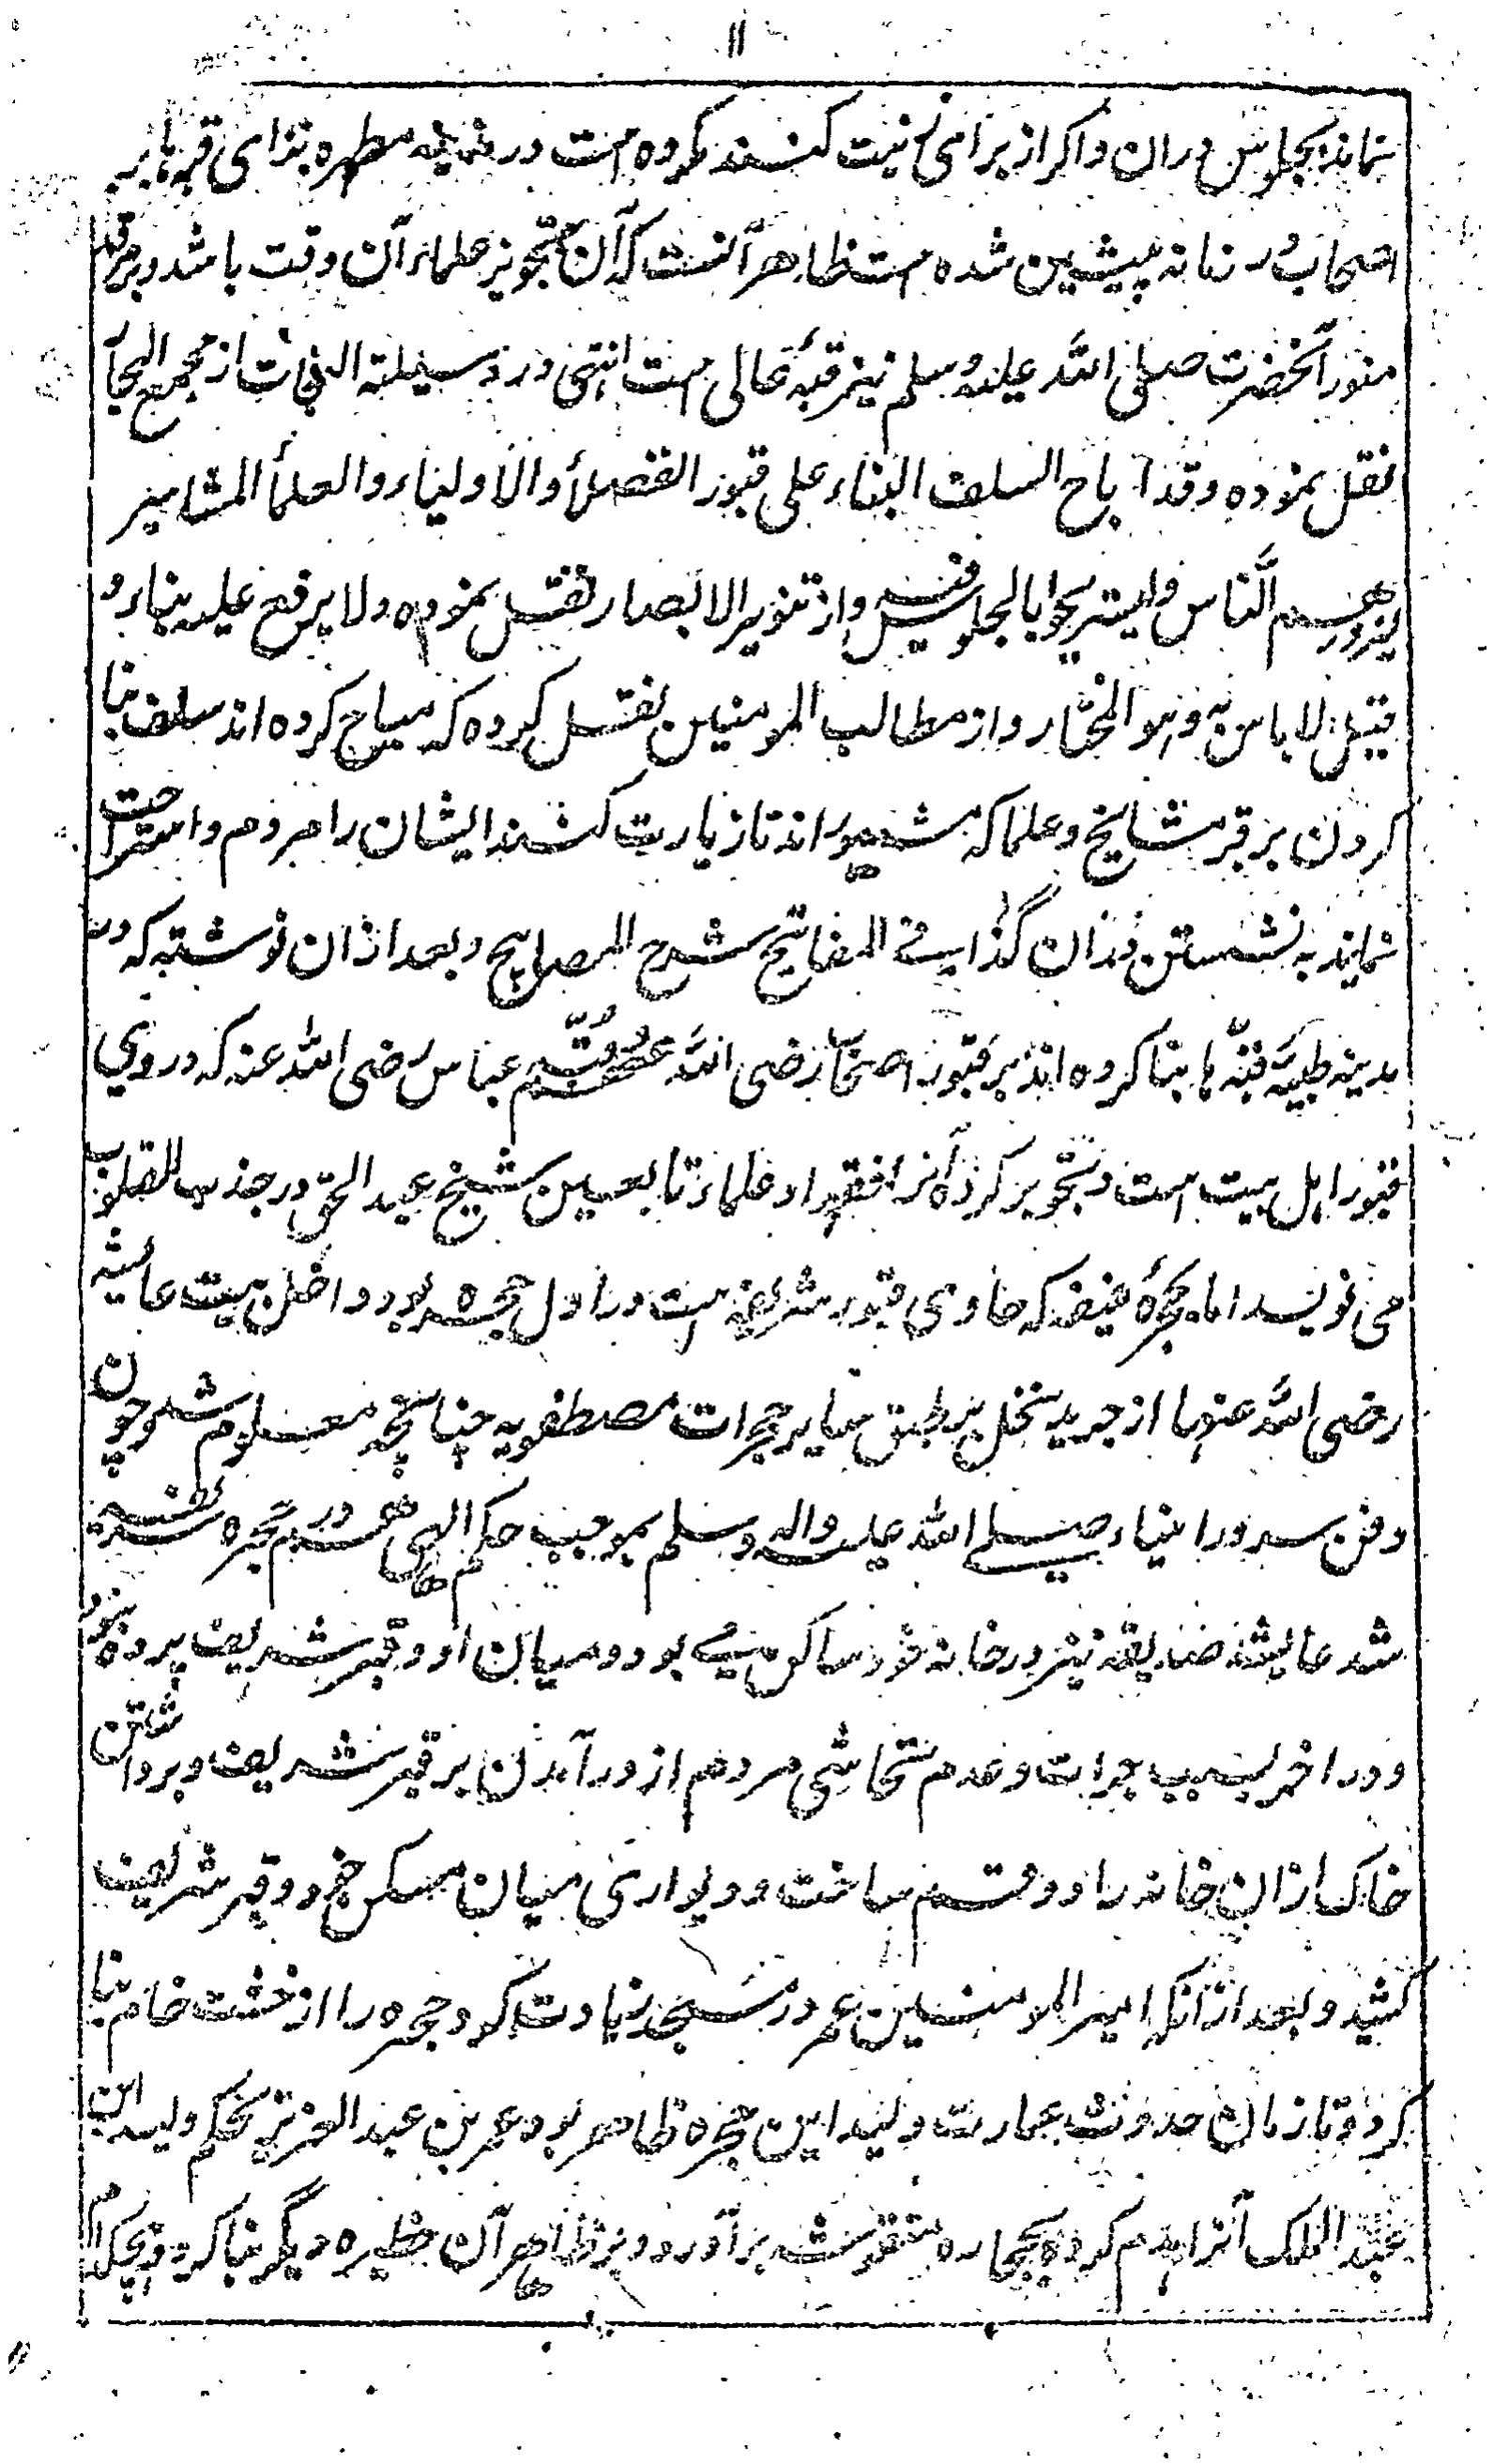 ۱۱
نمایند بجلوس دران و اگر از برای زینت کنند مکروه است در مدینه مطهره بنای قبه ها بر
اصحاب در زمانه پیشین شده است ظاهر آنست که آن بتجویز علماء آن وقت باشد و بر مرقد
منور آنحضرت صلی الله علیه وسلم نیز قبهٔ عالی است انتهی در وسیلته النجات از مجمع البحار
نقل نموده وقد اباح السلف البناء علی قبور الفضلأ والاولیاء والعلمأ المشاهیر
لیزورهم الناس ولیستریحوا بالجلوس فیه و از تنویر الابصار نقل نموده ولا یرفع علیه بناء و
قیل لا باس به و هو المختار و از مطالب المومنین نقل کرده که مباح کرده اند سلف بنا
کردن بر قبر مشایخ و علما که مشهور اند تا زیارت کنند ایشان را مردم و استراحت
نمایند به نشستن دران کذا فی المفاتیح شرح المصابیح و بعد ازان نوشته که در
مدینه طیبه قبه ها بنا کرده اند بر قبور اصحاب رضی الله عنهم قبه عباس رضی الله عنه که در وی
قبور اهل بیت است و تجویز کرده آنرا فقهاء و علماء تابعین شیخ عبد الحق در جذب القلوب
می نویسد اما حجرهٔ منیفه که حاوی قبور شریفه است در اول حجره بود داخل بیت عایشه
رضی الله عنها از جرید نخل بر طبق سایر حجرات مصطفویه چنانچه معلوم شد و چون
دفن سرور انبیاء صلے الله علیه واله وسلم بموجب حکم الهی هم در حجره شریفه
شد عایشه صدیقه نیز در خانه خود ساکن می بود و میان او و قبر شریف پرده نبود
و در اخر بسبب جرات و عدم تحاشی مردم از در آمدن بر قبر شریف و برداشتن
خاک ازان خانه را دو قسم ساخت و دیواری میان مسکن خود و قبر شریف
کشید و بعد از انکه امیر المومنین عمر در مسجد زیادت کرد حجره را از خشت خام بنا
کرد و تا زمان حدوث عمارت ولید این حجره ظاهر بود عمر بن عبد العزیز بحکم ولید ابن
عبد الملک آنرا هدم کرد بحجاره منقوشه بر آورد و بر ظاهر آن حظیره دیگر بنا کرد